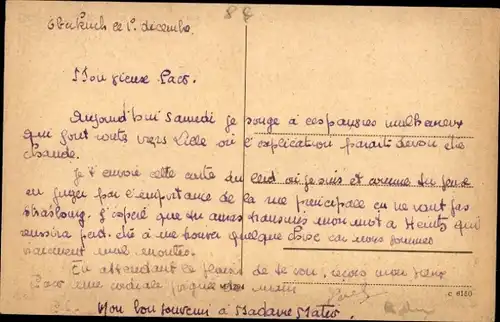 88
Oberkirch ce 1er décembre
Mon vieux Paco.
Aujourd'hui samedi je songe à ces pauvres malheureux
qui sont route vers Lille où l'explication parait devoir être
chaude.
Je t'envoie cette carte du bled où je suis et comme tu peux
en juger par l'importance de la rue principale ça ne vaut pas
Strasbourg. J'espère que tu auras transmis mon mot à Heintz qui
réussira peut-être à me trouver quelque chose car nous sommes
vraiment mal montés.
En attendant le plaisir de te voir, reçois mon vieux
Paco une cordiale poignée de main
Mon bon souvenir à Madame Mateo.
c 6150